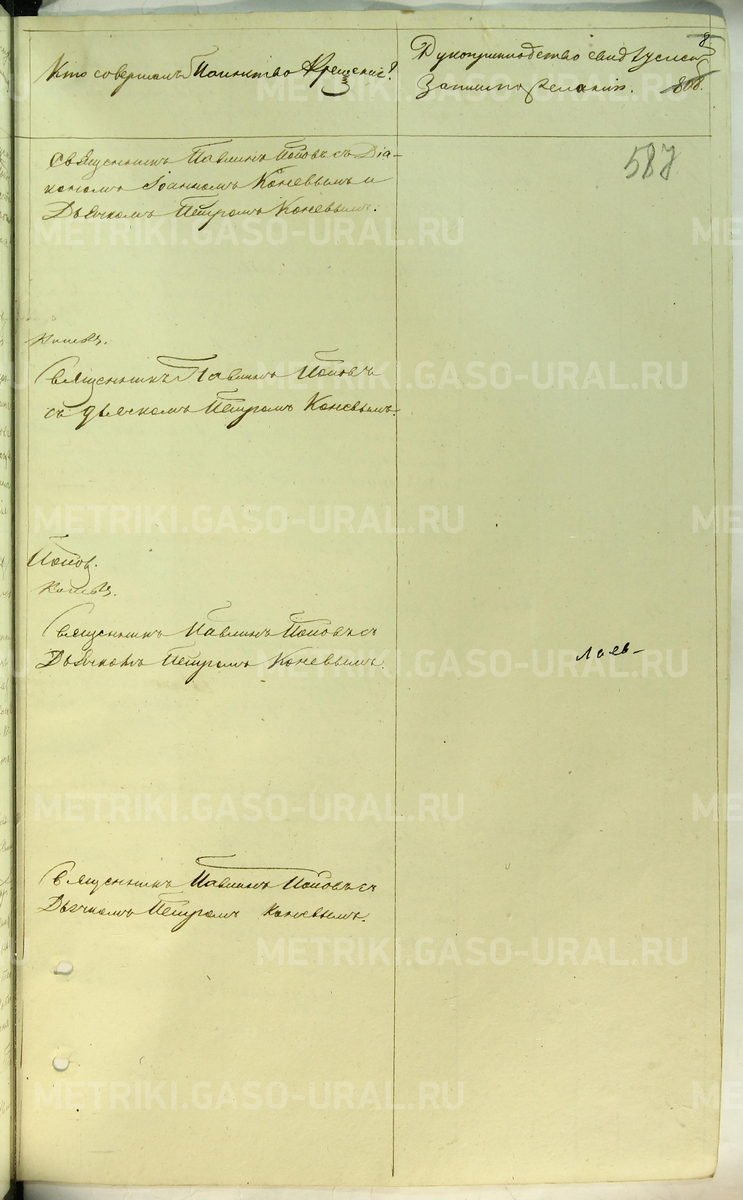 Кто совершалъ Таинство Крещенiе?
Рукоприкладство свидѣтелей
записи по желанiю.
8
808.
587
Священникъ Павлинъ Поповъ съ Дiа-
кономъ Iоанномъ Коневымъ и
Дьячкомъ Петромъ Коневымъ.
Священникъ Павлинъ Поповъ
съ дьячкомъ Петромъ Коневымъ.
Попов.
Священникъ Павлинъ Поповъ съ
Дьячкомъ Петромъ Коневымъ.
Священникъ Павлинъ Поповъ съ
Дьячкомъ Петромъ Коневымъ.
METRIKI.GASO-URAL.RU